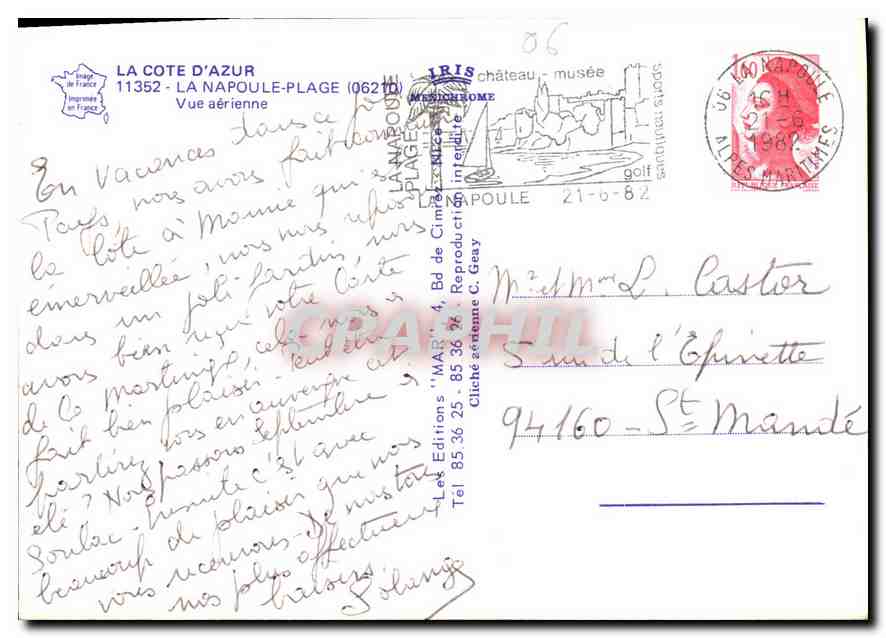 06
Image
de France
Imprimée
en France
LA COTE D'AZUR
11352 - LA NAPOULE-PLAGE (06210)
Vue aérienne
IRIS
MEXICHROME
LA NAPOULE
PLAGE
château - musée
sports nautiques
golf
LA NAPOULE 21-6-82
06 LA NAPOULE
15 H
1982
ALPES MARITIMES
1,60
REPUBLIQUE FRANÇAISE
En vacances dans ce joli
Pays, nous avons fait connaître
la Côte à Mamie qui est
émerveillée, nous nous reposons
dans un joli jardin, nous
avons bien reçu votre carte
de la Martinique, cela nous a
fait bien plaisir. Peut être
partirez vous en auvergne cet
été ? Nous passons Septembre à
Soulac. Ensuite c'est avec
beaucoup de plaisir que nous
vous recevrons. De nous tous
nos plus affectueux
baisers.
Solange
Les Editions "MAR", 4, Bd de Cimiez, Nice
Tél 85.36 25 - 85 36 26 - Reproduction interdite
Cliché aérienne C. Geay
Mr et Mme L. Castor
5 rue de l'Epinette
94160 - St Mandé
CPAPHIL